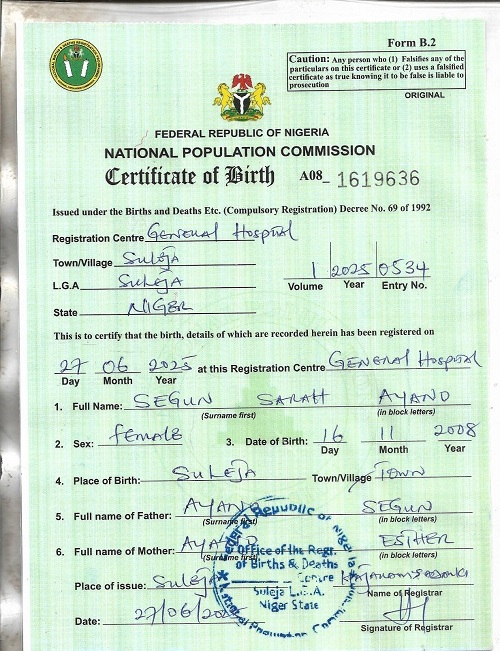 Form B.2
Caution: Any person who (1) Falsifies any of the
particulars on this certificate or (2) uses a falsified
certificate as true knowing it to be false is liable to
prosecution
ORIGINAL
FEDERAL REPUBLIC OF NIGERIA
NATIONAL POPULATION COMMISSION
Certificate of Birth A08- 1619636
Issued under the Births and Deaths Etc. (Compulsory Registration) Decree No. 69 of 1992
Registration Centre General Hospital
Town/Village Suleja
L.G.A Suleja 1 2025 0534
Volume Year Entry No.
State NIGER
This is to certify that the birth, details of which are recorded herein has been registered on
27 06 2025 at this Registration Centre General Hospital
Day Month Year
1. Full Name: SEGUN SARAH AYANO
(Surname first) (in block letters)
2. Sex: female 3. Date of Birth: 16 11 2008
Day Month Year
4. Place of Birth: Suleja Town/Village Town
5. Full name of Father: AYANO SEGUN
(Surname first) (in block letters)
6. Full name of Mother: AYANO ESTHER
(Surname first) (in block letters)
Place of issue: Suleja
Name of Registrar
Date: 27/06/2025
Signature of Registrar
Federal Republic of Nigeria
Office of the Regr.
of Births & Deaths
Centre
Suleja L.G.A.
Niger State
National Population Comm.